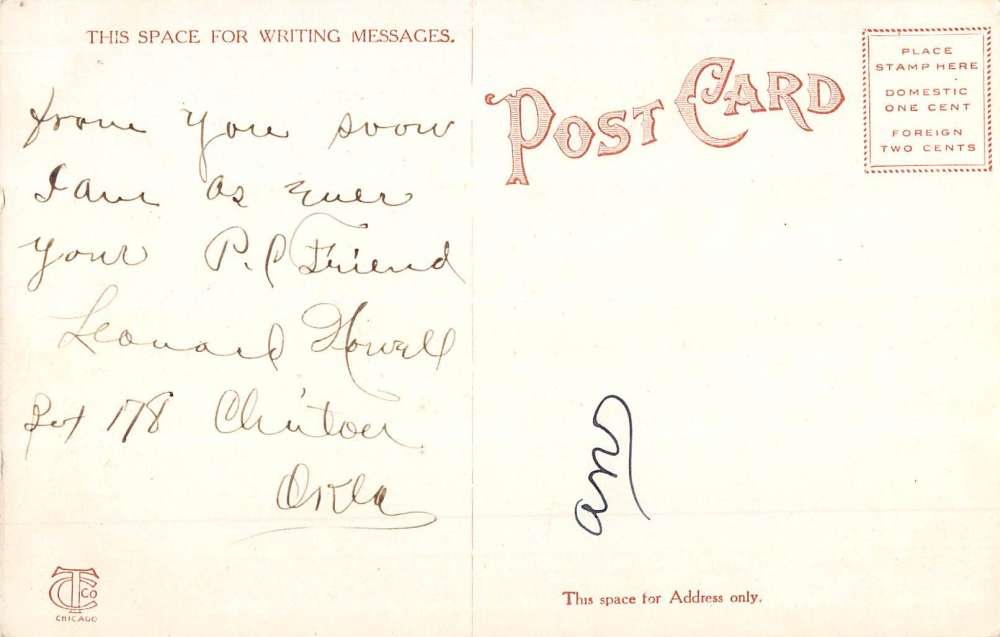 THIS SPACE FOR WRITING MESSAGES.
from you soon
I am as ever
your P. C Friend
Leonard Howell
Box 178 Clinton
Okla
POST CARD
PLACE
STAMP HERE
DOMESTIC
ONE CENT
FOREIGN
TWO CENTS
This space for Address only.
CT CO
CHICAGO